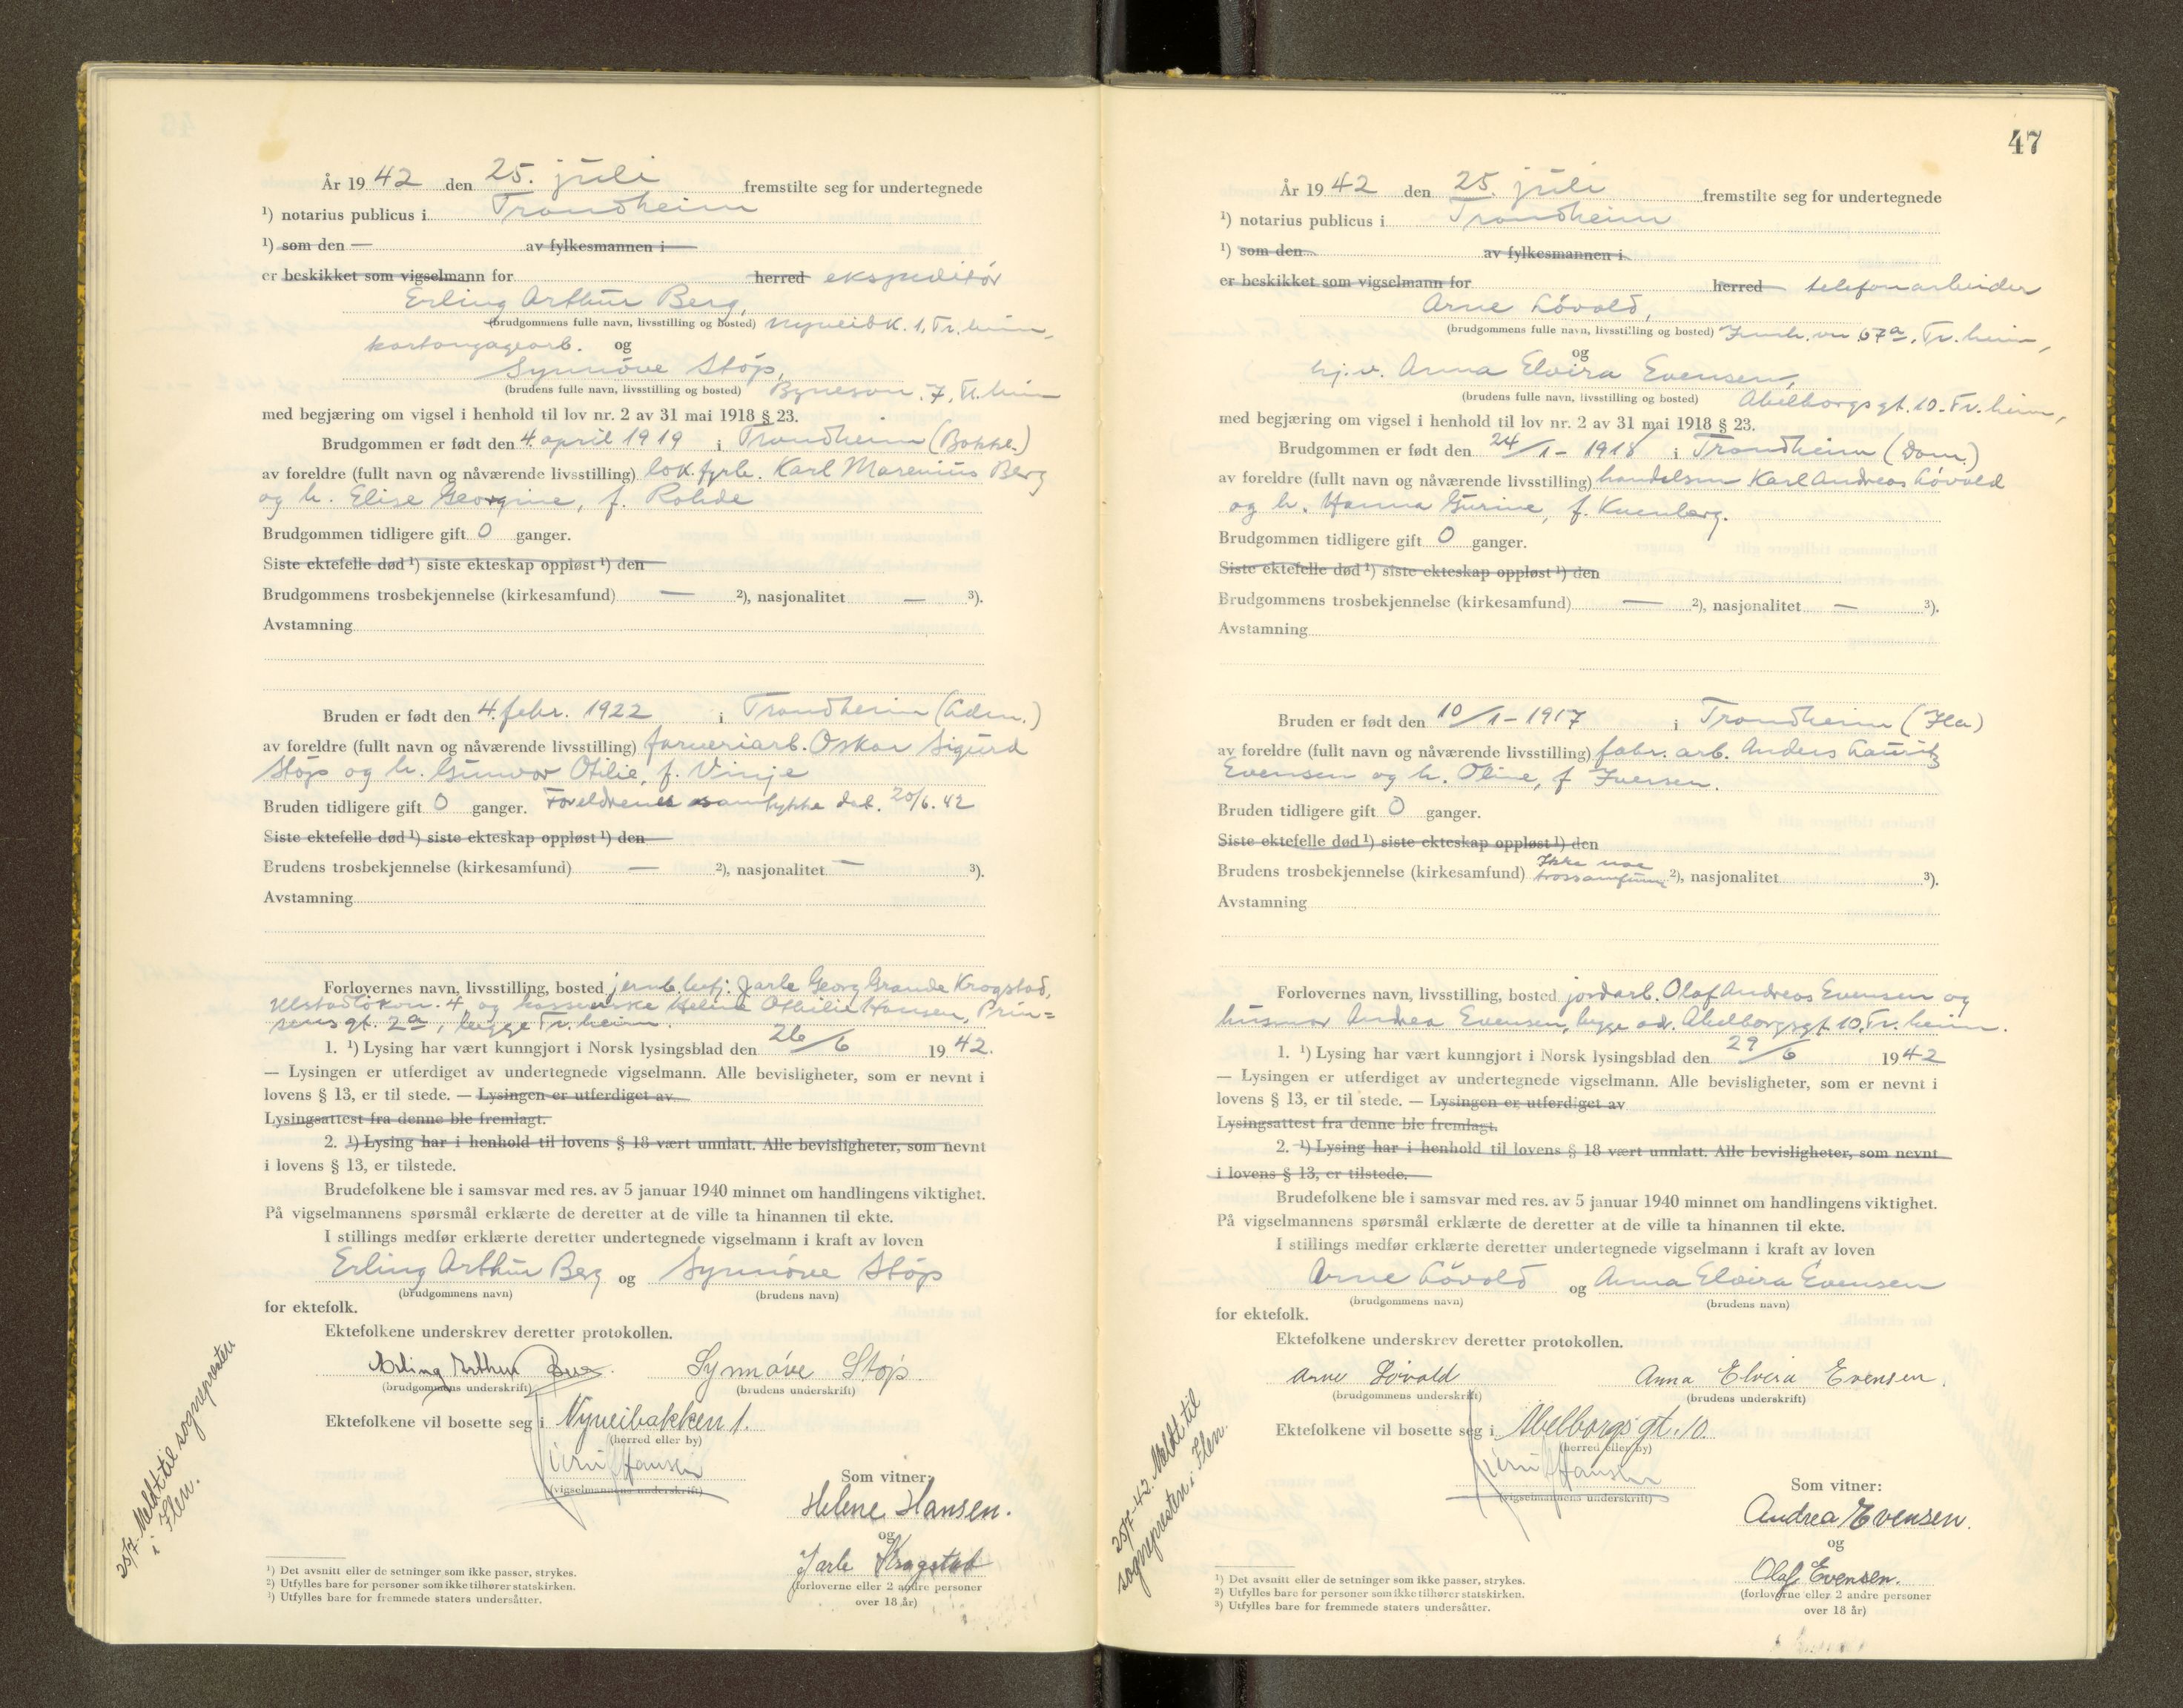 År 1942 den 25. juli fremstilte seg for undertegnede
¹) notarius publicus i Trondheim
¹) som den — av fylkesmannen i
er beskikket som vigselmann for herred ekspeditør
Erling Arthur Berg,
(brudgommens fulle navn, livsstilling og bosted) Nyveibk. 1. Tr.heim,
kartongagearb. og
Synnöve Stöp,
(brudens fulle navn, livsstilling og bosted) Bynesvn. 7. Tr.heim
med begjæring om vigsel i henhold til lov nr. 2 av 31 mai 1918 § 23.
Brudgommen er født den 4. april 1919 i Trondheim (Bakkl.)
av foreldre (fullt navn og nåværende livsstilling) lok.fyrb. Karl Marenius Berg
og h. Elise Georgine, f. Rohde
Brudgommen tidligere gift 0 ganger.
Siste ektefelle død ¹) siste ekteskap oppløst ¹) den
Brudgommens trosbekjennelse (kirkesamfund) — ²), nasjonalitet — ³).
Avstamning
Bruden er født den 4. febr. 1922 i Trondheim (Adm.)
av foreldre (fullt navn og nåværende livsstilling) farveriarb. Oskar Sigurd
Stöp og h. Gunvor Otilie, f. Vinje
Bruden tidligere gift 0 ganger. Foreldrenes samtykke dat. 20/6. 42
Siste ektefelle død ¹) siste ekteskap oppløst ¹) den
Brudens trosbekjennelse (kirkesamfund) — ²), nasjonalitet — ³).
Avstamning
Forlovernes navn, livsstilling, bosted jernb.betj. Jarle Georg Grande Krogstad,
Ulstadløkvn. 4 og kassererske Helene Othilie Hansen, Prin=
sens gt. 2a, begge Tr.heim.
1. ¹) Lysing har vært kunngjort i Norsk lysingsblad den 26/6 1942.
— Lysingen er utferdiget av undertegnede vigselmann. Alle bevisligheter, som er nevnt i
lovens § 13, er til stede. — Lysingen er utferdiget av
Lysingsattest fra denne ble fremlagt.
2. ¹) Lysing har i henhold til lovens § 18 vært unnlatt. Alle bevisligheter, som nevnt
i lovens § 13, er tilstede.
Brudefolkene ble i samsvar med res. av 5 januar 1940 minnet om handlingens viktighet.
På vigselmannens spørsmål erklærte de deretter at de ville ta hinannen til ekte.
I stillings medfør erklærte deretter undertegnede vigselmann i kraft av loven
Erling Arthur Berg og Synnöve Stöp
(brudgommens navn) (brudens navn)
for ektefolk.
Ektefolkene underskrev deretter protokollen.
Erling Arthur Berg. Synnöve Stöp.
(brudgommens underskrift) (brudens underskrift)
Ektefolkene vil bosette seg i Nyveibakken 1.
(herred eller by)
Hansen
(vigselmannens underskrift)
Som vitner:
Helene Hansen.
og
Jarle Krogstad
(forloverne eller 2 andre personer
over 18 år)
25/7. Meldt til sognepresten
i Ilen.
¹) Det avsnitt eller de setninger som ikke passer, strykes.
²) Utfylles bare for personer som ikke tilhører statskirken.
³) Utfylles bare for fremmede staters undersåtter.
47
År 1942 den 25. juli fremstilte seg for undertegnede
¹) notarius publicus i Trondheim
¹) som den av fylkesmannen i
er beskikket som vigselmann for herred telefonarbeider
Arne Lövold,
(brudgommens fulle navn, livsstilling og bosted) 67a. Tr.heim,
og
hj.v. Anna Elvira Evensen,
(brudens fulle navn, livsstilling og bosted) Abelborgsgt. 10. Tr.heim,
med begjæring om vigsel i henhold til lov nr. 2 av 31 mai 1918 § 23.
Brudgommen er født den 24/1 - 1918 i Trondheim (Dom.)
av foreldre (fullt navn og nåværende livsstilling) handelsm Karl Andreas Lövold
og h. Hanna Gurine, f. Kvenberg.
Brudgommen tidligere gift 0 ganger.
Siste ektefelle død ¹) siste ekteskap oppløst ¹) den
Brudgommens trosbekjennelse (kirkesamfund) — ²), nasjonalitet — ³).
Avstamning
Bruden er født den 10/1 - 1917 i Trondheim (Ila)
av foreldre (fullt navn og nåværende livsstilling) fabr. arb. Anders Lauritz
Evensen og h. Oline, f Iversen.
Bruden tidligere gift 0 ganger.
Siste ektefelle død ¹) siste ekteskap oppløst ¹) den
Brudens trosbekjennelse (kirkesamfund) Ikke noe trossamfunn ²), nasjonalitet ³).
Avstamning
Forlovernes navn, livsstilling, bosted jordarb. Olaf Andreas Evensen og
husmor Andrea Evensen, begge adr. Abelborgsgt. 10. Tr.heim.
1. ¹) Lysing har vært kunngjort i Norsk lysingsblad den 29/6 1942
— Lysingen er utferdiget av undertegnede vigselmann. Alle bevisligheter, som er nevnt i
lovens § 13, er til stede. — Lysingen er utferdiget av
Lysingsattest fra denne ble fremlagt.
2. ¹) Lysing har i henhold til lovens § 18 vært unnlatt. Alle bevisligheter, som nevnt
i lovens § 13, er tilstede.
Brudefolkene ble i samsvar med res. av 5 januar 1940 minnet om handlingens viktighet.
På vigselmannens spørsmål erklærte de deretter at de ville ta hinannen til ekte.
I stillings medfør erklærte deretter undertegnede vigselmann i kraft av loven
Arne Lövold og Anna Elvira Evensen
(brudgommens navn) (brudens navn)
for ektefolk.
Ektefolkene underskrev deretter protokollen.
Arne Lövold Anna Elvira Evensen.
(brudgommens underskrift) (brudens underskrift)
Ektefolkene vil bosette seg i Abelborgs gt. 10.
(herred eller by)
Hansen
(vigselmannens underskrift)
Som vitner:
Andrea Evensen.
og
Olaf Evensen.
(forloverne eller 2 andre personer
over 18 år)
25/7-42. Meldt til
sognepresten i Ilen.
¹) Det avsnitt eller de setninger som ikke passer, strykes.
²) Utfylles bare for personer som ikke tilhører statskirken.
³) Utfylles bare for fremmede staters undersåtter.